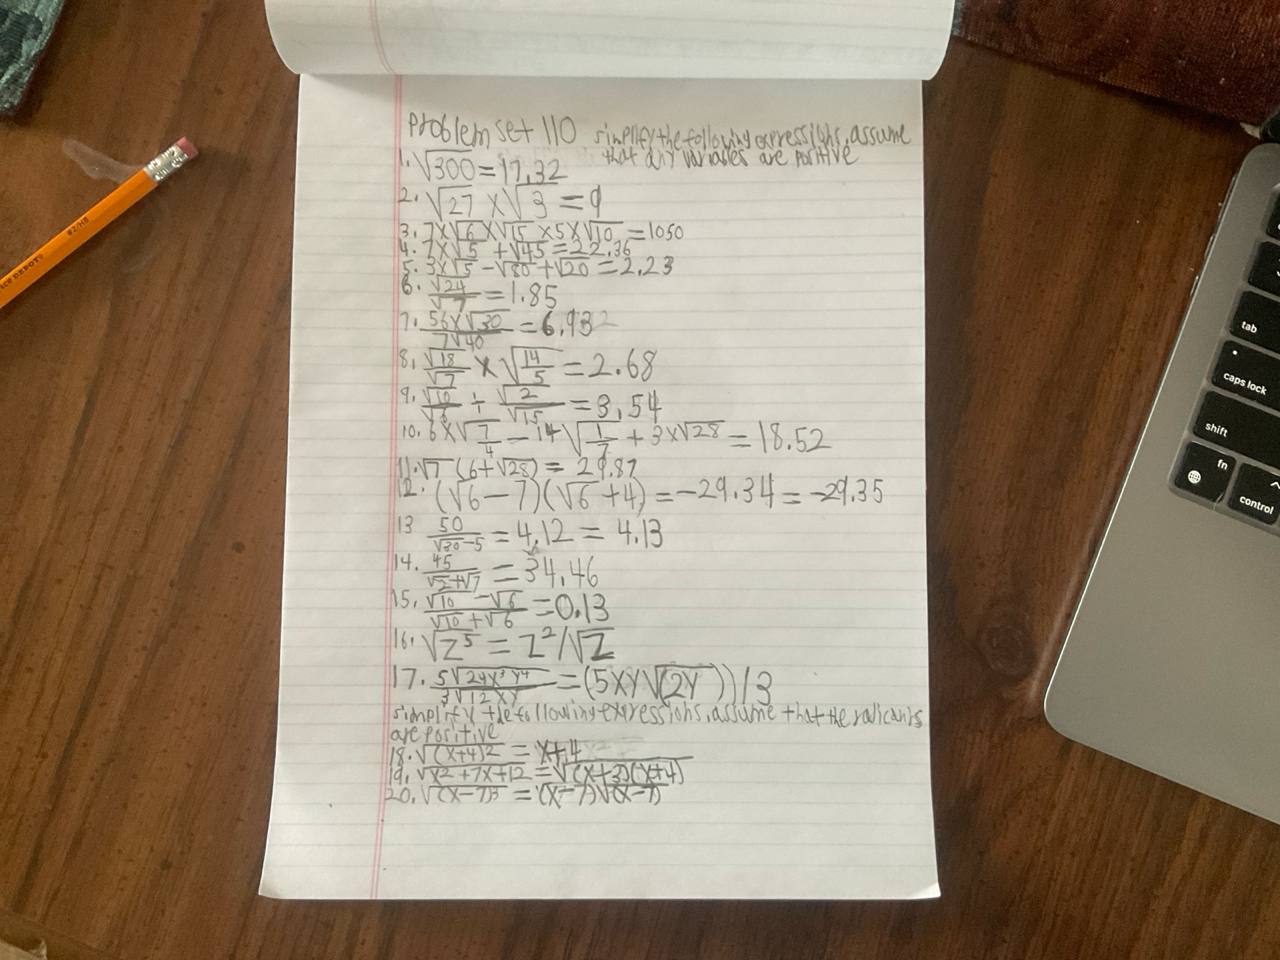 Problem set 110 simplify the following expressions, assume
that any variables are positive
1. √300 = 17.32
2. √27 × √3 = 9
3. 7×√6 ×√15 ×5×√10 = 1050
4. 7×√5 + √45 = 22.36
5. 3×√5 - √80 + √20 = 2.23
6. √24/√7 = 1.85
7. 56×√30/7√40 = 6.932
8. √18/√7 × √14/5 = 2.68
9. √10/√6 ÷ √2/√15 = 3,54
10. 6×√7/4 - 14√1/7 + 3×√28 = 18.52
11. √7 (6+√28) = 29.87
12. (√6 - 7)(√6 + 4) = -29.34 = -29.35
13 50/√30-5 = 4.12 = 4.13
14. 45/√2+√7 = 34.46
15. √10 - √6/√10 + √6 = 0.13
16. √Z⁵ = Z²/√Z
17. 5√24x³y⁴/3√12xy = (5xy√(2y))/3
simplify the following expressions, assume that the radicants
are positive
18. √(x+4)2 = x+4
19. √x2+7x+12 = √(x+3)(x+4)
20. √(x-7)3 = (x-7)√(x-7)
OFFICE DEPOT #2/HB
tab
caps lock
shift
fn
control